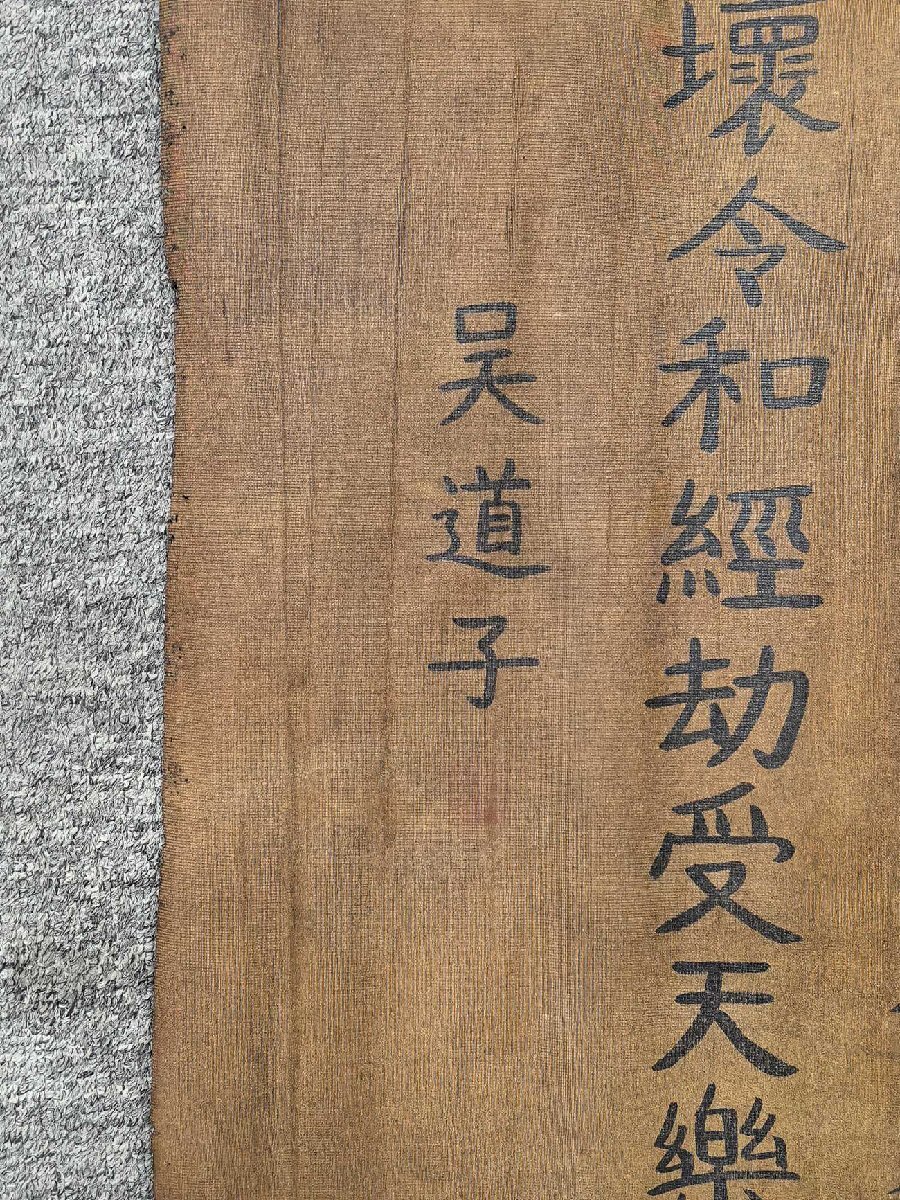 壞令和經劫受天樂
吴道子